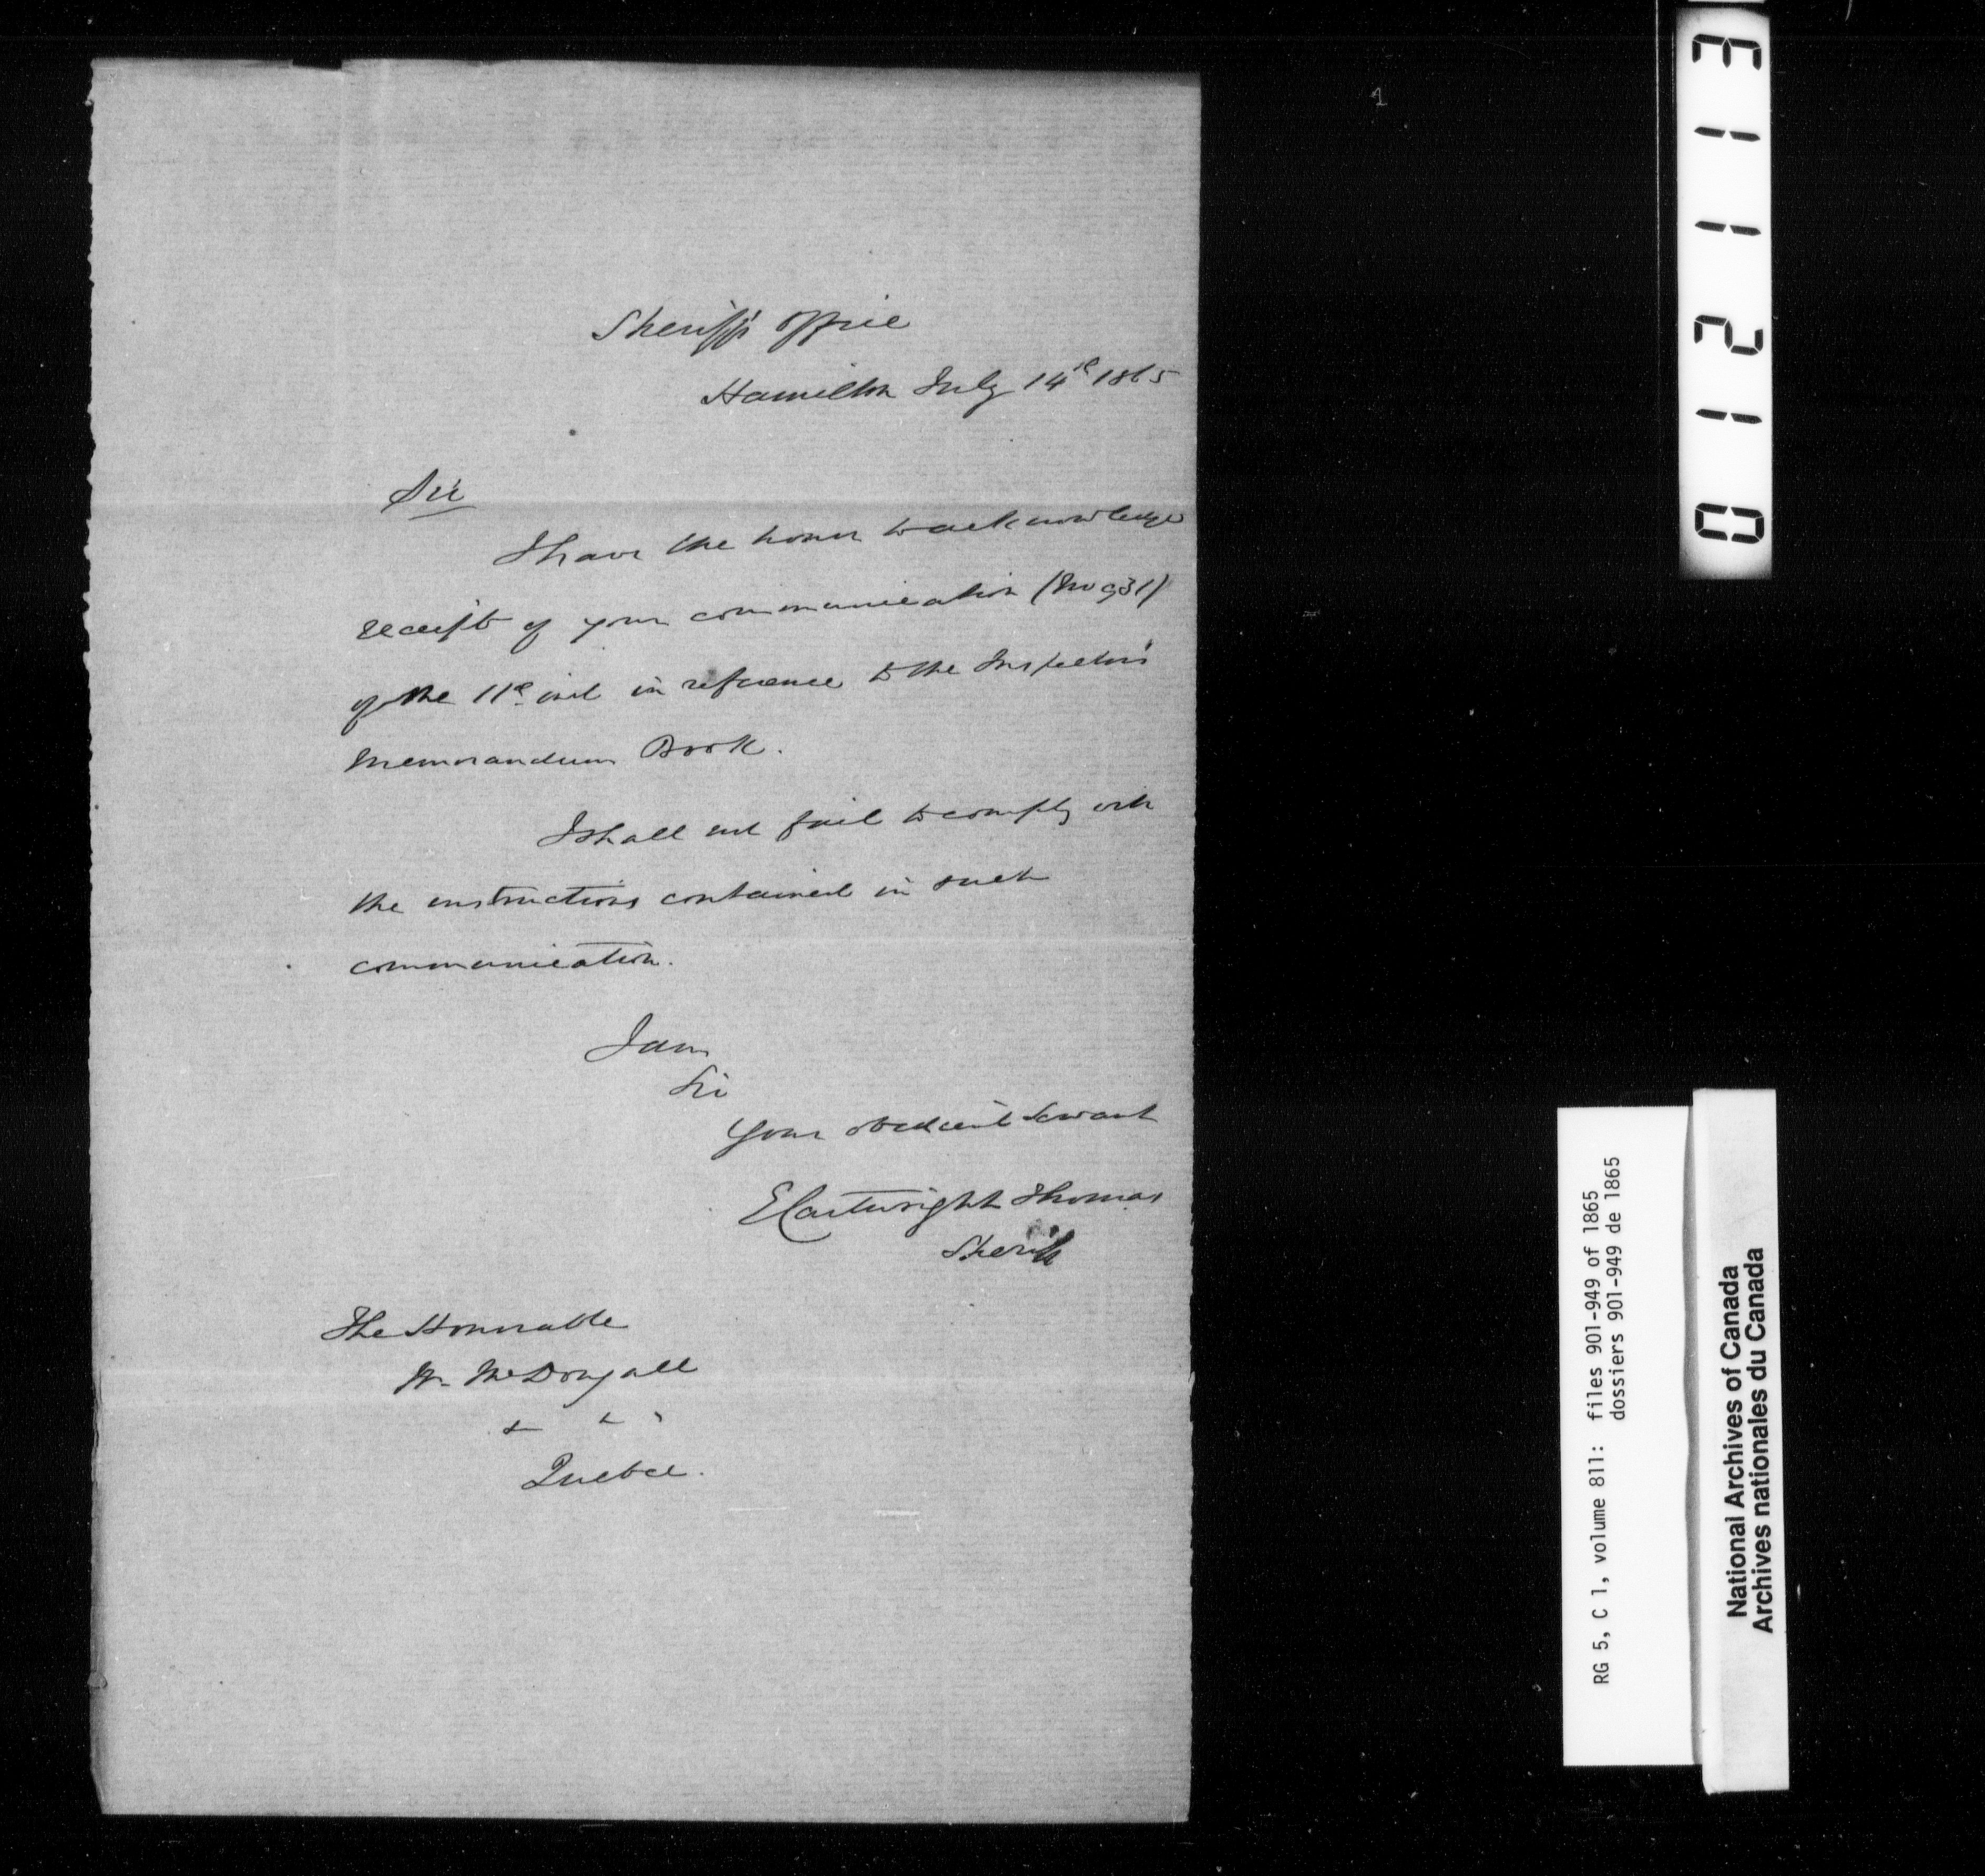 Sheriff's Office
Hamilton July 14th 1865
Sir
I have the honor to acknowledge
receipt of your communication (No 931)
of the 11th inst in reference to the Inspectors
Memorandum Book.
I shall not fail to comply with
the instructions contained in such
communication.
I am
Sir
Your obedient Servant
E Cartwright Thomas
Sheriff
The Honorable
Wm McDougall
& & &
Quebec.
1
011211113
RG 5, C 1, volume 811: files 901-949 of 1865
dossiers 901-949 de 1865
National Archives of Canada
Archives nationales du Canada